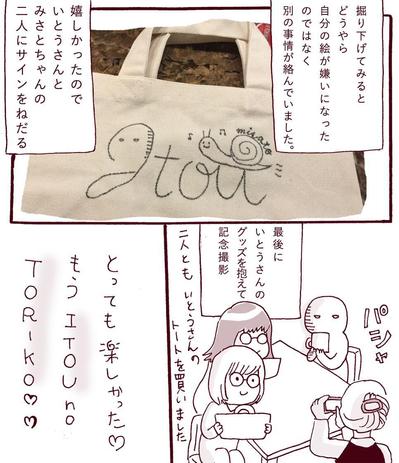 掘り下げてみると
どうやら
自分の絵が嫌いになった
のではなく
別の事情が絡んでいました。
嬉しかったので
いとうさんと
みさとちゃんの
二人にサインをねだる
misato
Itou
最後に
いとうさんの
グッズを抱えて
記念撮影
パシャ
二人とも いとうさんの
トートを買いました
とっても楽しかった♡
もう ITOU no
TORIKO♡♡